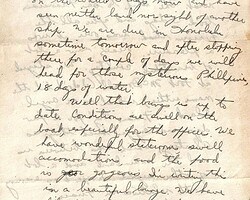 on the water 5 days now and have
seen neither land nor sight of another
ship. We are due in Honolulu
sometime tomorrow and after stopping
there for a couple of days we will
head for those mysterious Phillipines,
18 days of water.
Well that brings us up to
date. Conditions are swell on the
boat, especially for the officers. We
have wonderful staterooms swell
accomodations, and the food
is gorgeous. I'm writing this
in a beautiful lounge. We have